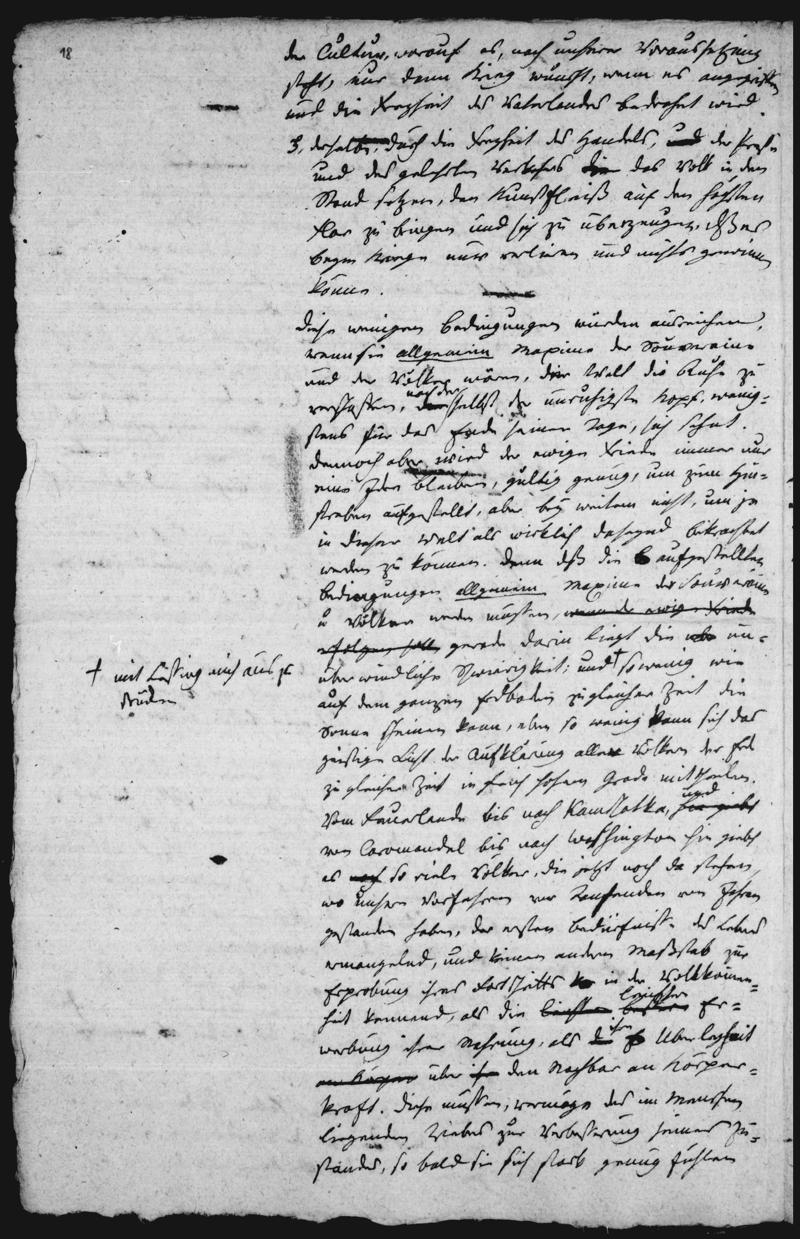 18
der Cultur, worauf es, nach unserer Voraussetzung
steht, nur dann Krieg wünscht, wenn es angegriffen
und die Freyheit des Vaterlandes bedrohet wird.
3, derselbe, durch die Freyheit des Handels, und der Presse
und des gelehrten Verkehrs die das Volk in den
Stand setzen, den Kunstfleiß auf den höchsten
Flor zu bringen und sich zu überzeugen, daß es
beym Kriege nur verlieren und nichts gewinnen
könne.
Diese wenigen Bedingungen würden ausreichen,
wenn sie allgemein Maxime der Souveraine
und der Völker wären, der Welt die Ruhe zu
verschaffen, nach der selbst der unruhigste Kopf, wenig-
stens für das Ende seiner Tage, sich sehnt.
Dennoch aber wird der ewige Friede immer nur
eine Idee bleiben, gültig genug, um zum Hin-
streben aufgestellt, aber bey weitem nicht, um je
in dieser Welt als wirklich daseyend betrachtet
werden zu können. Denn daß die aufgestellten
Bedingungen allgemein Maxime der Souveraine
u Völker werden müßten, wenn der ewige Friede
erfolgen soll, gerade darin liegt die un-
überwindliche Schwierigkeit; und + so wenig wie
+ mit Lessing mich auszu
drücken
auf dem ganzen Erdboden zu gleicher Zeit die
Sonne scheinen kann, eben so wenig kann sich das
geistige Licht der Aufklärung allen Völkern der Erde
zu gleicher Zeit in hohem Grade mittheilen.
Vom Feuerlande bis nach Kamschatka, und
von Coromandel bis nach Washington hin giebts
es noch so viele Völker, die jetzt noch da stehen,
wo unsere Vorfahren vor Tausenden von Jahren
gestanden haben, der ersten Bedürfnisse des Lebens
ermangelnd, und keinen andern Maßstab zur
Erprobung ihres Fortschritts in der Vollkommen-
heit kennend, als die leichtere Er-
werbung ihrer Nahrung, als ihre Überlegenheit
über den Nachbar an Körper-
kraft. Diese müssen, vermöge des im Menschen
liegenden Triebes zur Verbesserung seines Zu-
standes, so bald sie sich stark genug fühlen